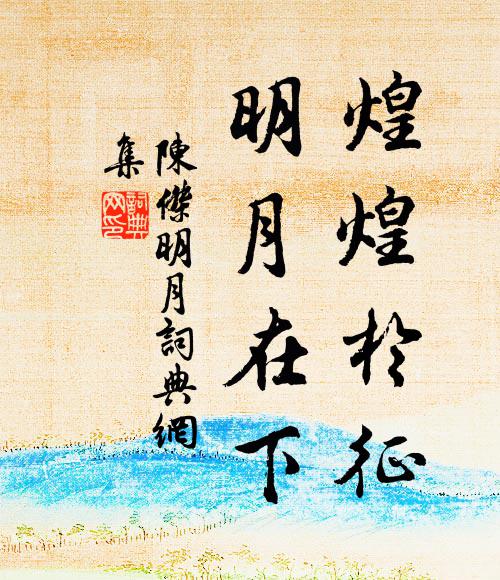 煌煌於征
明月在下
陳傑明月詞典網
集
詞典
网印